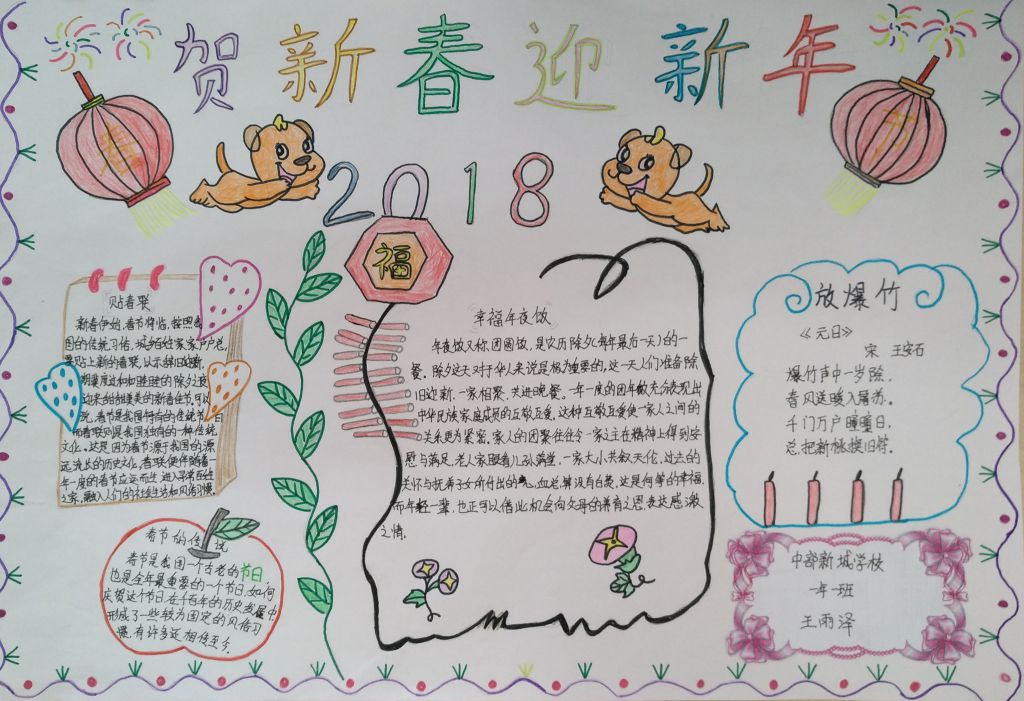 贺新春迎新年
2018
福
贴春联
新春伊始,春节将临,按照我
国的传统习俗,城乡各姓家家户户总
要贴上新的春联,以示辞旧迎新,
除夕夜
迎来
说,春节是我国特有的传统节日
而春联则是我国独有的一种传统
文化。这是因为春节源于我国的源
远流长的历史文化,春联便伴随着
年一度的春节应运而生,进入寻常百姓
之家,融入人们的社会生活和风俗习惯。
春节的传说
春节是我国一个古老的节日,
也是全年最重要的一个节日,如何
庆贺这个节日,在千百年的历史发展中,
形成了一些较为固定的风俗习
惯,有许多还相传至今。
幸福年夜饭
年夜饭又称团圆饭,是农历除夕(每年最后一天)的一
餐。除夕这天对于华人来说是极为重要的,这一天人们准备除
旧迎新,一家相聚,共进晚餐。一年一度的团年飯充分表现出
中华民族家庭成员的互敬互爱,这种互敬互爱使一家人之间的
关系更为紧密。家人的团聚往往令一家之主在精神上得到安
慰与满足,老人家眼看儿孙满堂,一家大小共叙天伦,过去的
关怀与抚养子女所付出的心血总算没有白费,这是何等的幸福。
而年轻一辈,也正可以借此机会向父母的养育之恩表达感激
之情。
放爆竹
《元日》
宋 王安石
爆竹声中一岁除,
春风送暖入屠苏。
千门万户曈曈日,
总把新桃换旧符。
中部新城学校
一年一班
王雨泽